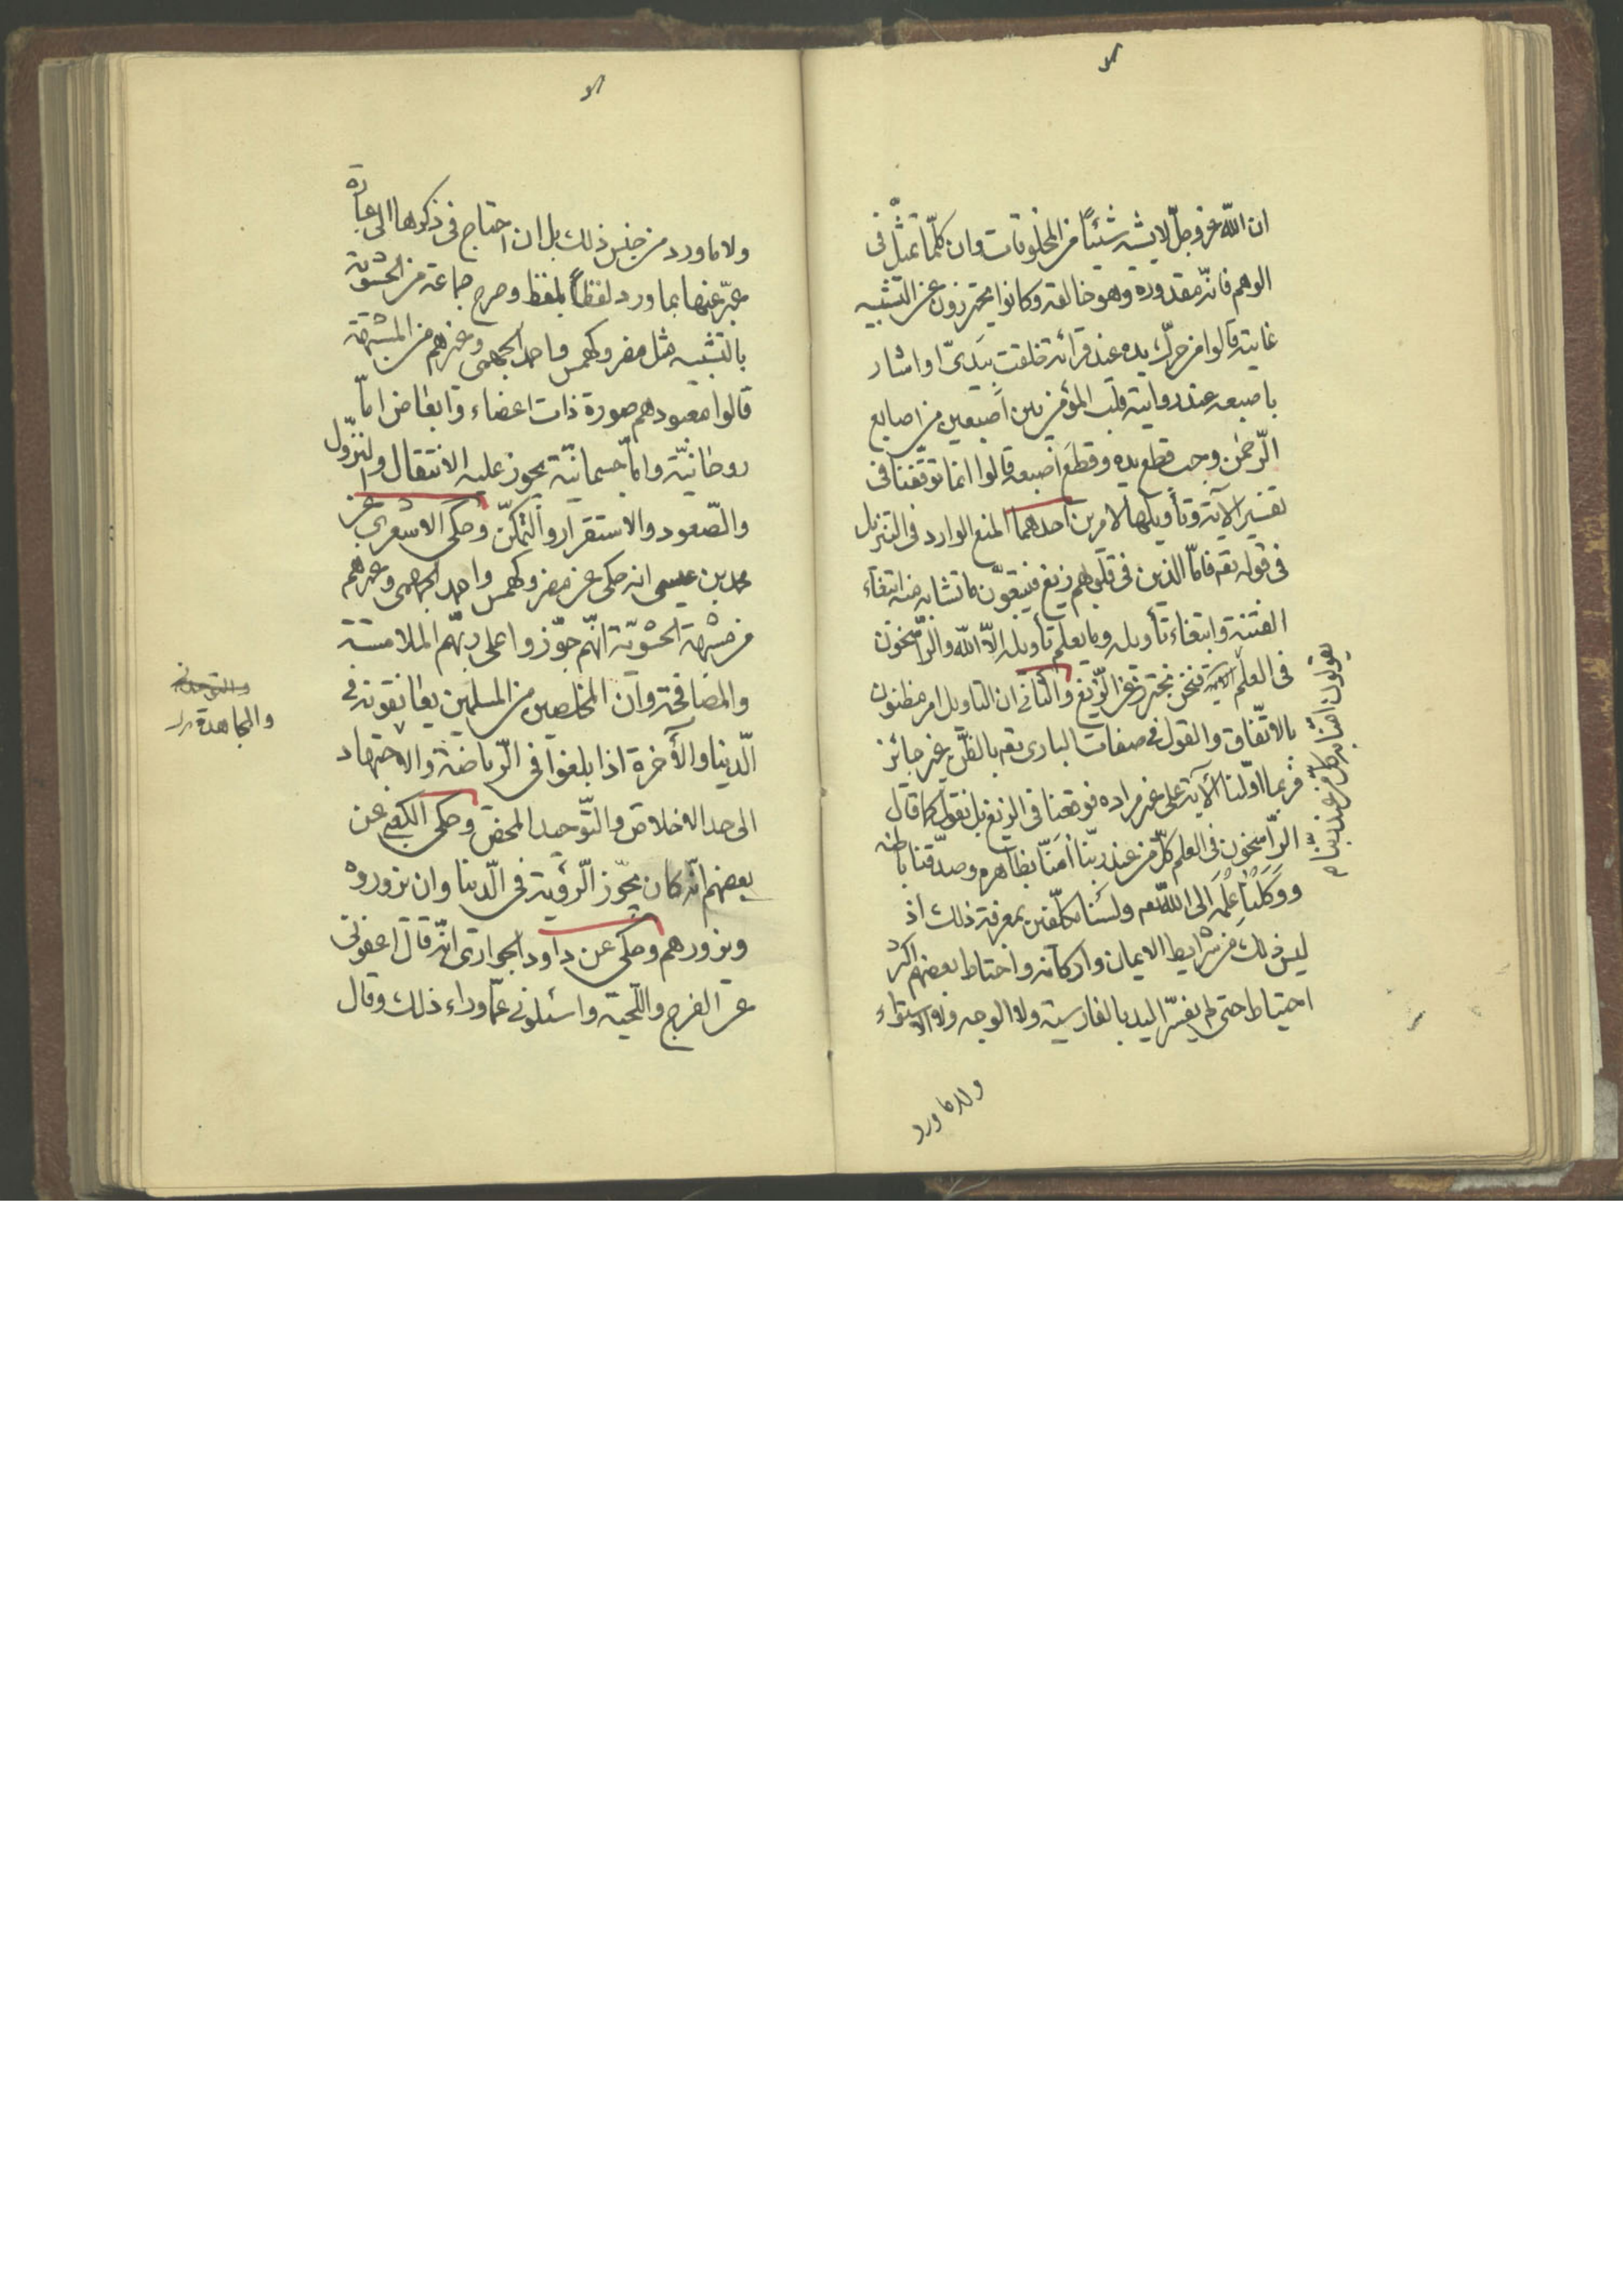 ان الله عز وجل لا يشبه شيئاً من المخلوقات وان كلّما تمثّل فى
الوهم فانّه مقدوره وهو خالقه وكانوا يحترزون عن التشبيه
غايته قالوا من حرّك يده عند قرائة خلقت بيدىّ او اشار
باصبعه عند روايته قلب المؤمن بين اصبعين من اصابع
الرّحمن وجب قطع يده وقطع اصبعه قالوا انما توقّفنا فى
تفسير الآية وتأويلها لامرين احدهما المنع الوارد فى التنزيل
فى قوله تعه فامّا الذين فى قلوبهم زيغ فيتبعون ما تشابه منه ابتغاء
الفتنة وابتغاء تأويله وما يعلم تأويله الاّ الله والرّاسخون
فى العلم الآية فنحن نحترز عن الزّيغ والثانى ان التاويل امر مظنون
بالاتّفاق والقول فى صفات البارى تعه بالظّن غير جائز
فربما اوّلنا الآية على غير مراده فوقعنا فى الزيغ بل نقول كما قال
الرّاسخون فى العلم كلّ من عند ربّنا امنّا بظاهره وصدّقنا باطنه
ووكلنا علمه الى الله تعه ولسنا مكلّفين بمعرفة ذلك اذ
ليس ذلك من شرايط الايمان واركانه واحتاط بعضهم اكثر
احتياط حتى لم يفسّر اليد بالفارسية ولا الوجه ولا الاستواء
يقولون امنّا به كلّ من عند ربّنا م
ولا ما ورد
ولا ما ورد من جنس ذلك بل ان احتاج فى ذكرها الى عبارة
عبّر عنها بما ورد لفظاً بلفظ وصرح جماعة من الحشوية
بالتشبيه مثل مضر وكهمس واحمد الجهمى وغيرهم من المشبهة
قالوا معبودهم صورة ذات اعضاء وابعاض امّا
روحانيّة وامّا جسمانيّة يجوز عليه الانتقال والنزّول
والصّعود والاستقرار والتمكّن وحكى الاشعرى عن
محمد بن عيسى انه حكى عن مضر وكهمس واحمد الجهمى وغيرهم
من مشبهة الحشويّة انّهم جوّزوا على ربّهم الملامسة
والمصافحة وان المخلصين من المسلمين يعانقونه فى
الّدنيا والأخرة اذا بلغوا فى الّرياضة والاجتهاد
والمجاهدة
الى حد الاخلاص والتّوحيد المحض وحكى الكعبى عن
بعضهم انّه كان يجوّز الّرؤية فى الّدنيا وان يزوروه
ويزورهم وحكى عن داود الجوارى انّه قال اعفونى
عن الفرج واللّحية واسئلونى عمّا وراء ذلك وقال